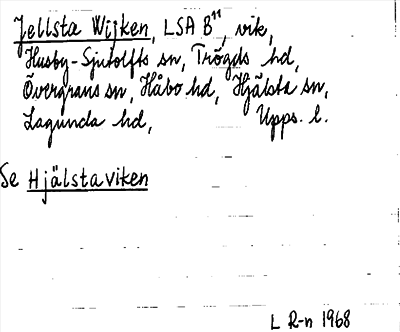 Jellsta Wijken, LSA B¹¹, vik,
Husby-Sjutolfts sn, Trögds hd,
Övergrans sn, Håbo hd, Hjälsta sn,
Lagunda hd, Upps. l.
Se Hjälstaviken
L R-n 1968